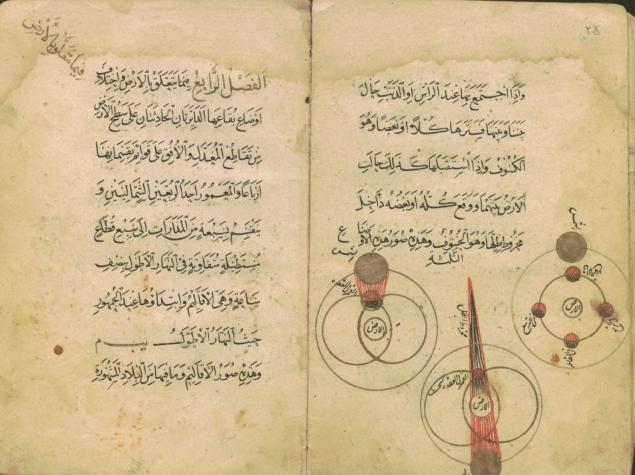 ٢٨
واذا اجتمع بهما عند الراس او الذنب حال
بيننا وبينها فسترها كلا او بعضا وهو
الكسوف واذا استقبلها حالت
الارض بينهما ووقع كله او بعضه داخل
مخروط ظلها وهو الخسوف وهذه صور هذه الاوضاع
الثلثة
شمس
شمس
الارض
الارض
الارض
فيما يتعلق بالارض
الفصل الرابع فيما يتعلق بالارض واختلاف
اوضاع بقاعها الدائرتان الحادثتان على سطح الارض
من تقاطع المعدل والافق على قوائم يقسمانها
ارباعا والمعمور احد الربعين الشماليين و
ينقسم بسبعة من المدارات الى سبع قطاع
مستطيلة متفاوتة في النهار الاطول بنصف
ساعة وهي الاقاليم وابتداؤها عند الجمهور
حيث النهار الاطول يب م
وهذه صور الاقاليم وما فيها من البلاد المشهورة